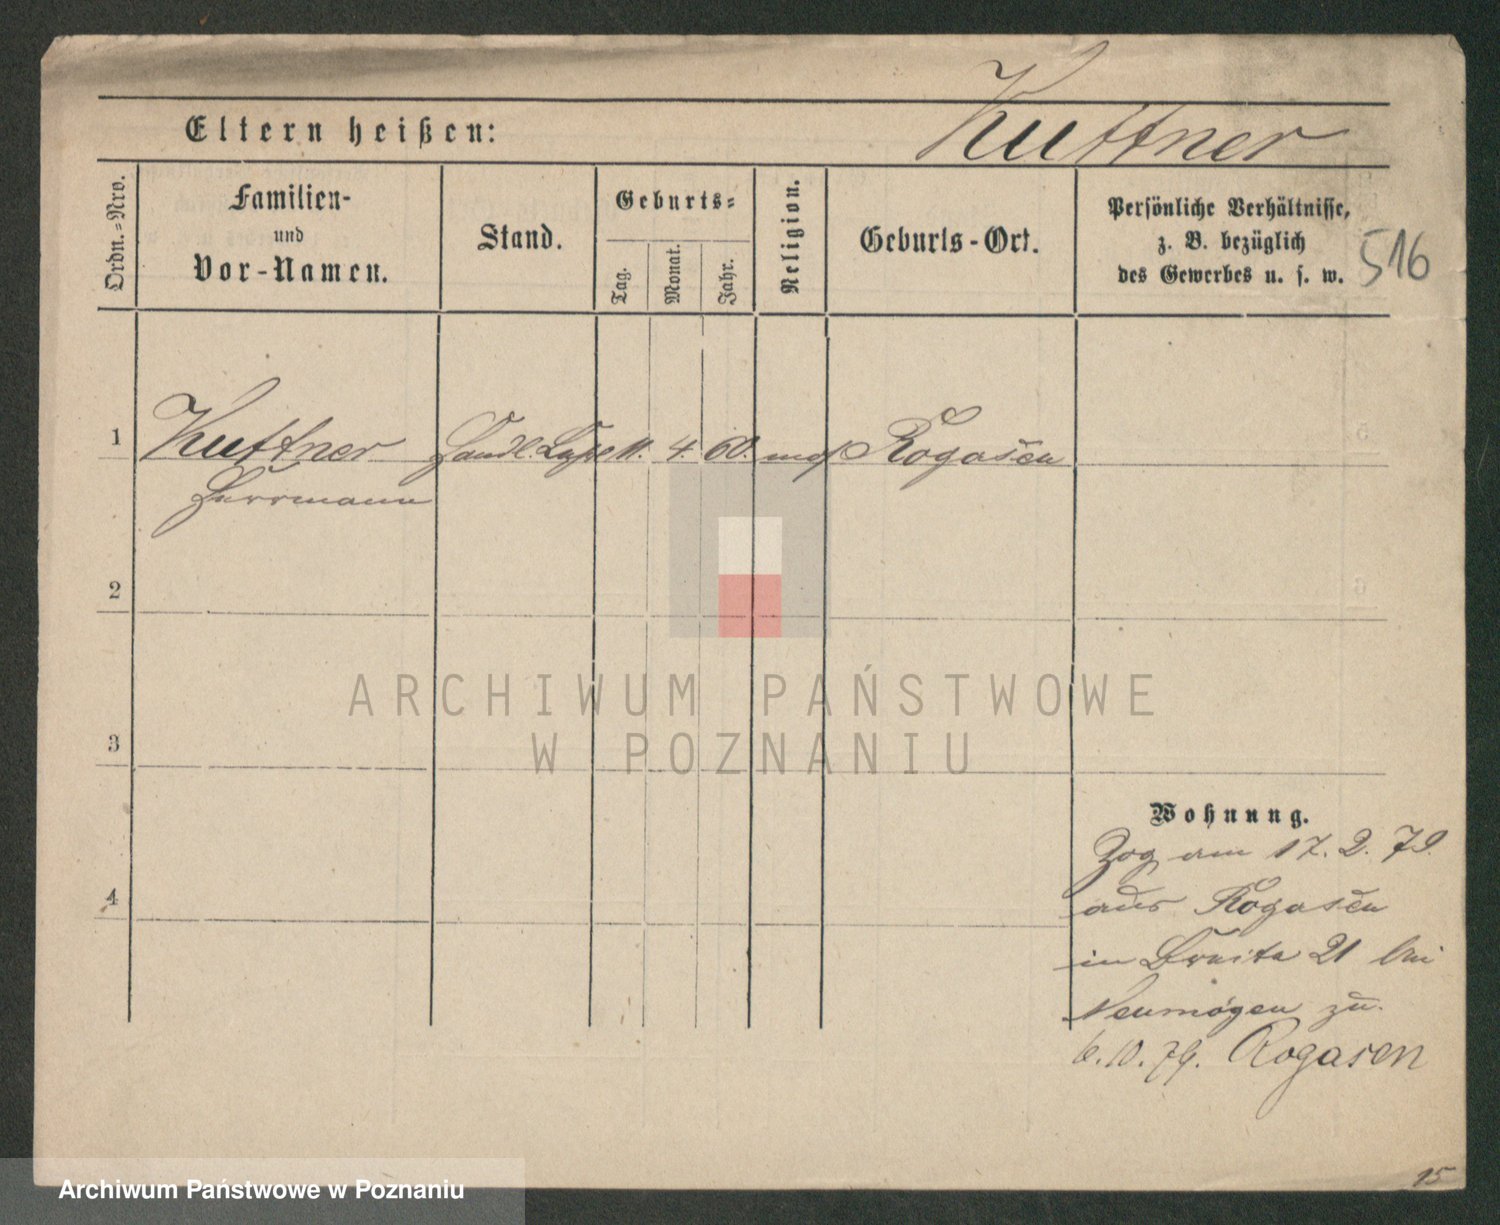 Kuttner
Eltern heißen:
Ordn.-Nro.
Familien-
und
Vor-Namen.
Stand.
Geburts-
Tag.
Monat.
Jahr.
Religion.
Geburts-Ort.
Persönliche Verhältnisse,
z. B. bezüglich
des Gewerbes u. s. w.
516
1
Kuttner Handl. 11. 4. 60. mos Rogasen
Herrmann
2
3
4
ARCHIWUM PAŃSTWOWE
W POZNANIU
Wohnung.
Zog am 17. 2. 79.
aus Rogasen
in Breite 21 bei
Neumögen zu.
6. 10. 79. Rogasen
15
Archiwum Państwowe w Poznaniu